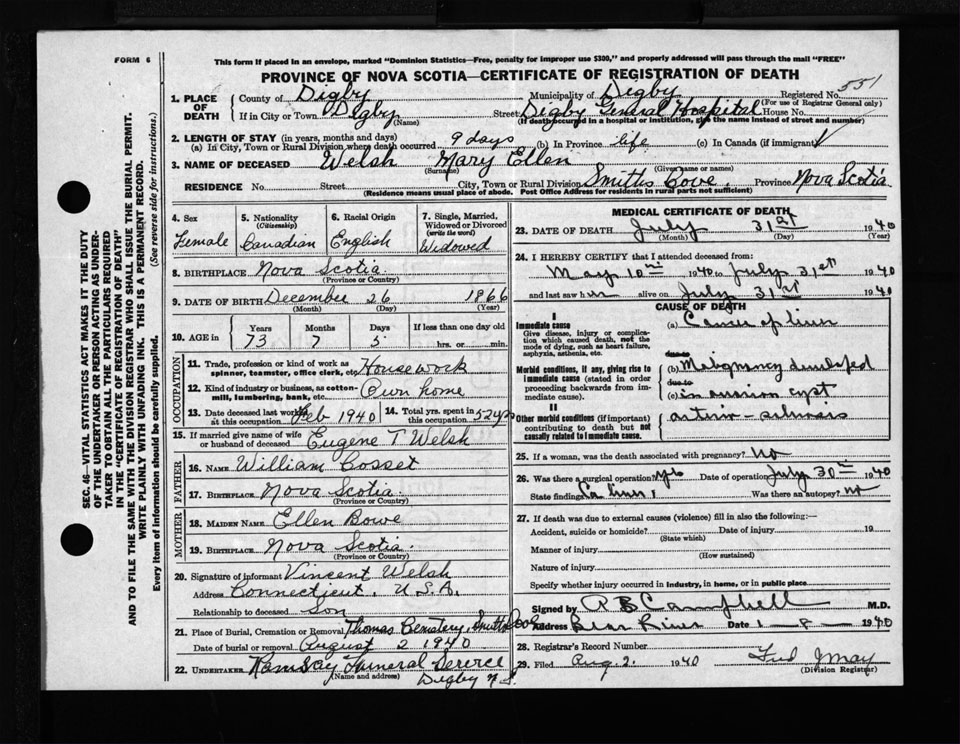 FORM 6
This form if placed in an envelope, marked "Dominion Statistics—Free, penalty for improper use $300," and properly addressed will pass through the mail "FREE"
PROVINCE OF NOVA SCOTIA—CERTIFICATE OF REGISTRATION OF DEATH
Registered No. 551
(For use of Registrar General only)
1. PLACE OF DEATH
County of Digby Municipality of Digby
If in City or Town Digby (Name) Street Digby General Hospital House No.
(If death occurred in a hospital or institution, give the name instead of street and number)
2. LENGTH OF STAY (in years, months and days)
(a) In City, Town or Rural Division where death occurred 9 days (b) In Province life (c) In Canada (if immigrant)
3. NAME OF DECEASED Welsh Mary Ellen
(Surname) (Given name or names)
RESIDENCE No. Street City, Town or Rural Division Smiths Cove, Province Nova Scotia
(Residence means usual place of abode. Post Office Address for residents in rural parts not sufficient)
4. Sex Female
5. Nationality (Citizenship) Canadian
6. Racial Origin English
7. Single, Married, Widowed or Divorced (write the word) Widowed
8. BIRTHPLACE Nova Scotia
(Province or Country)
9. DATE OF BIRTH December 26 1866
(Month) (Day) (Year)
10. AGE in Years 73 Months 7 Days 5 If less than one day old hrs. or min.
OCCUPATION
11. Trade, profession or kind of work as spinner, teamster, office clerk, etc. Housework
12. Kind of industry or business, as cotton-mill, lumbering, bank, etc. Own home
13. Date deceased last worked at this occupation Feb 1940 14. Total yrs. spent in this occupation 52 yrs
15. If married give name of wife or husband of deceased Eugene T Welsh
FATHER
16. NAME William Cosset
17. BIRTHPLACE Nova Scotia.
(Province or Country)
MOTHER
18. MAIDEN NAME Ellen Bowe
19. BIRTHPLACE Nova Scotia.
(Province or Country)
20. Signature of informant Vincent Welsh
Address Connecticut, U.S.A.
Relationship to deceased Son
21. Place of Burial, Cremation or Removal Thomas Cemetery, Smiths Cove
Date of burial or removal August 2 1940
22. UNDERTAKER Ramsay Funeral Service
(Name and address) Digby N.S.
MEDICAL CERTIFICATE OF DEATH
23. DATE OF DEATH July 31st 1940
(Month) (Day) (Year)
24. I HEREBY CERTIFY that I attended deceased from:
May 10th 1940 to July 31st 1940
and last saw her alive on July 31st 1940
CAUSE OF DEATH
I
Immediate cause
Give disease, injury or complication which caused death, not the mode of dying, such as heart failure, asphyxia, asthenia, etc.
(a) Cancer of liver
due to
Morbid conditions, if any, giving rise to immediate cause (stated in order proceeding backwards from immediate cause).
(b) Malignancy developed
due to
(c) in ovarian cyst
II
Other morbid conditions (if important) contributing to death but not causally related to immediate cause.
arterio-sclerosis
25. If a woman, was the death associated with pregnancy? No
26. Was there a surgical operation? yes Date of operation July 30th 1940
State findings Ca liver Was there an autopsy? no
27. If death was due to external causes (violence) fill in also the following:—
Accident, suicide or homicide? Date of injury 19
(State which)
Manner of injury
(How sustained)
Nature of injury
Specify whether injury occurred in industry, in home, or in public place
Signed by A B Campbell M.D.
Address Bear River Date 1-8- 1940
28. Registrar's Record Number
29. Filed Aug. 2. 1940 Fred J May
(Division Registrar)
SEC. 46—VITAL STATISTICS ACT MAKES IT THE DUTY
OF THE UNDERTAKER OR PERSON ACTING AS UNDER-
TAKER TO OBTAIN ALL THE PARTICULARS REQUIRED
IN THE "CERTIFICATE OF REGISTRATION OF DEATH"
AND TO FILE THE SAME WITH THE DIVISION REGISTRAR WHO SHALL ISSUE THE BURIAL PERMIT.
WRITE PLAINLY WITH UNFADING INK. THIS IS A PERMANENT RECORD.
Every item of Information should be carefully supplied. (See reverse side for instructions.)